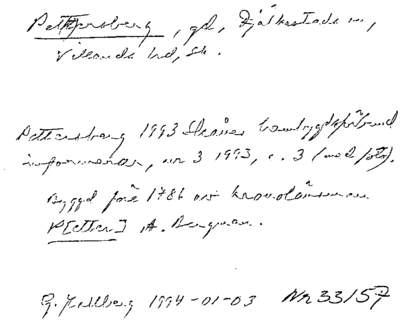 Pettersberg, gd, Fjälkestads sn,
Villands hd, Sk.
Pettersberg 1993 Skånes hembygdsförbund
informerar, nr 3 1993, s. 3 (med foto).
Byggd före 1786 av kronolänsman
P[etter] A. Bergman.
1994-01-03 Nr 33157